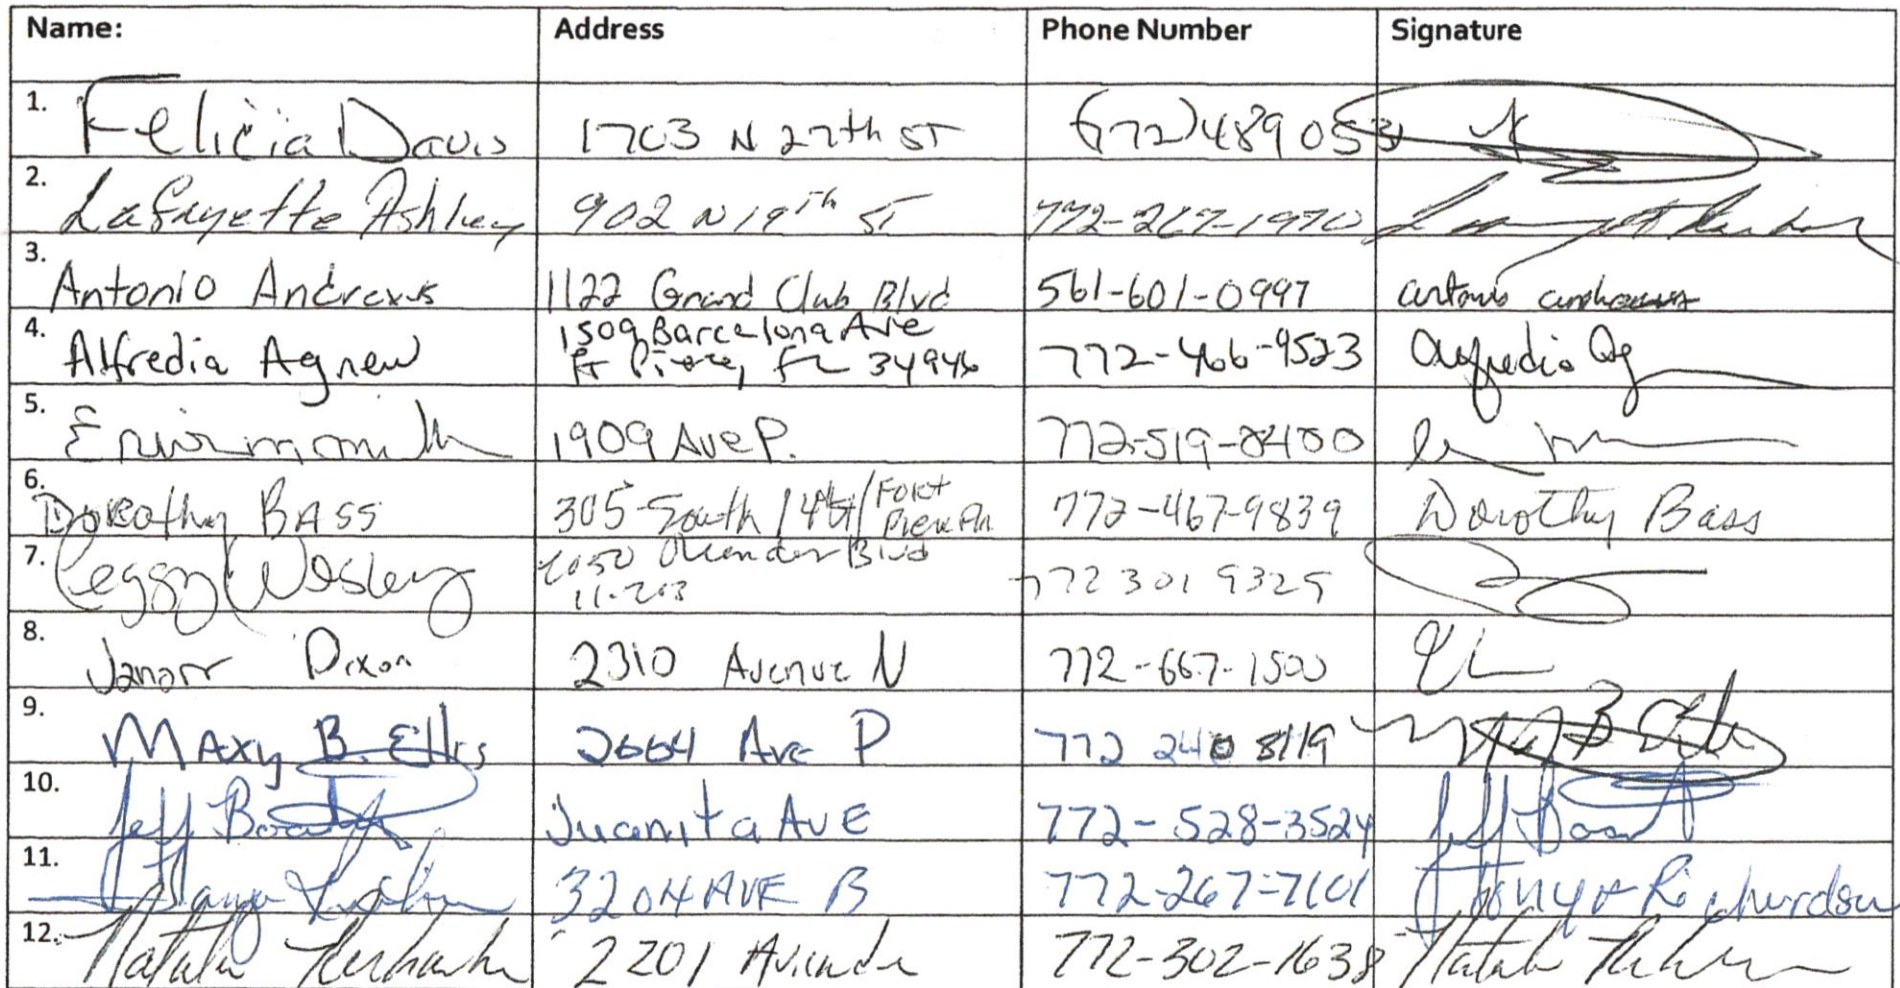 Name: Address Phone Number Signature
1. Felicia Davis 1703 N 27th ST (772)489 0531
2. Lafayette Ashley 902 N 19th ST 772-267-1970
3. Antonio Andrews 1122 Grand Club Blvd 561-601-0997 antonio andrews
4. Alfredia Agnew 1509 Barcelona Ave 772-466-9523 Alfredia Ag
Ft Pierce, FL 34946
5. 1909 Ave P. 772-519-8400
6. Dorothy BASS 305 South 14st / Fort 772-467-9839 Dorothy Bass
Pierce Fla
7. Peggy Wesley Oleander Blvd 772 301 9325
11-203
8. Janarr Dixon 2310 Avenue N 772-667-1500
9. MAxy B. Ellis 2664 Ave P 772 240 8119
10. Jeff Juanita AvE 772-528-3524 Jeff
11. 3204 AVE B 772-267-7101 Tonya Richardson
12. Natalie 2201 772-302-1638 Natalie